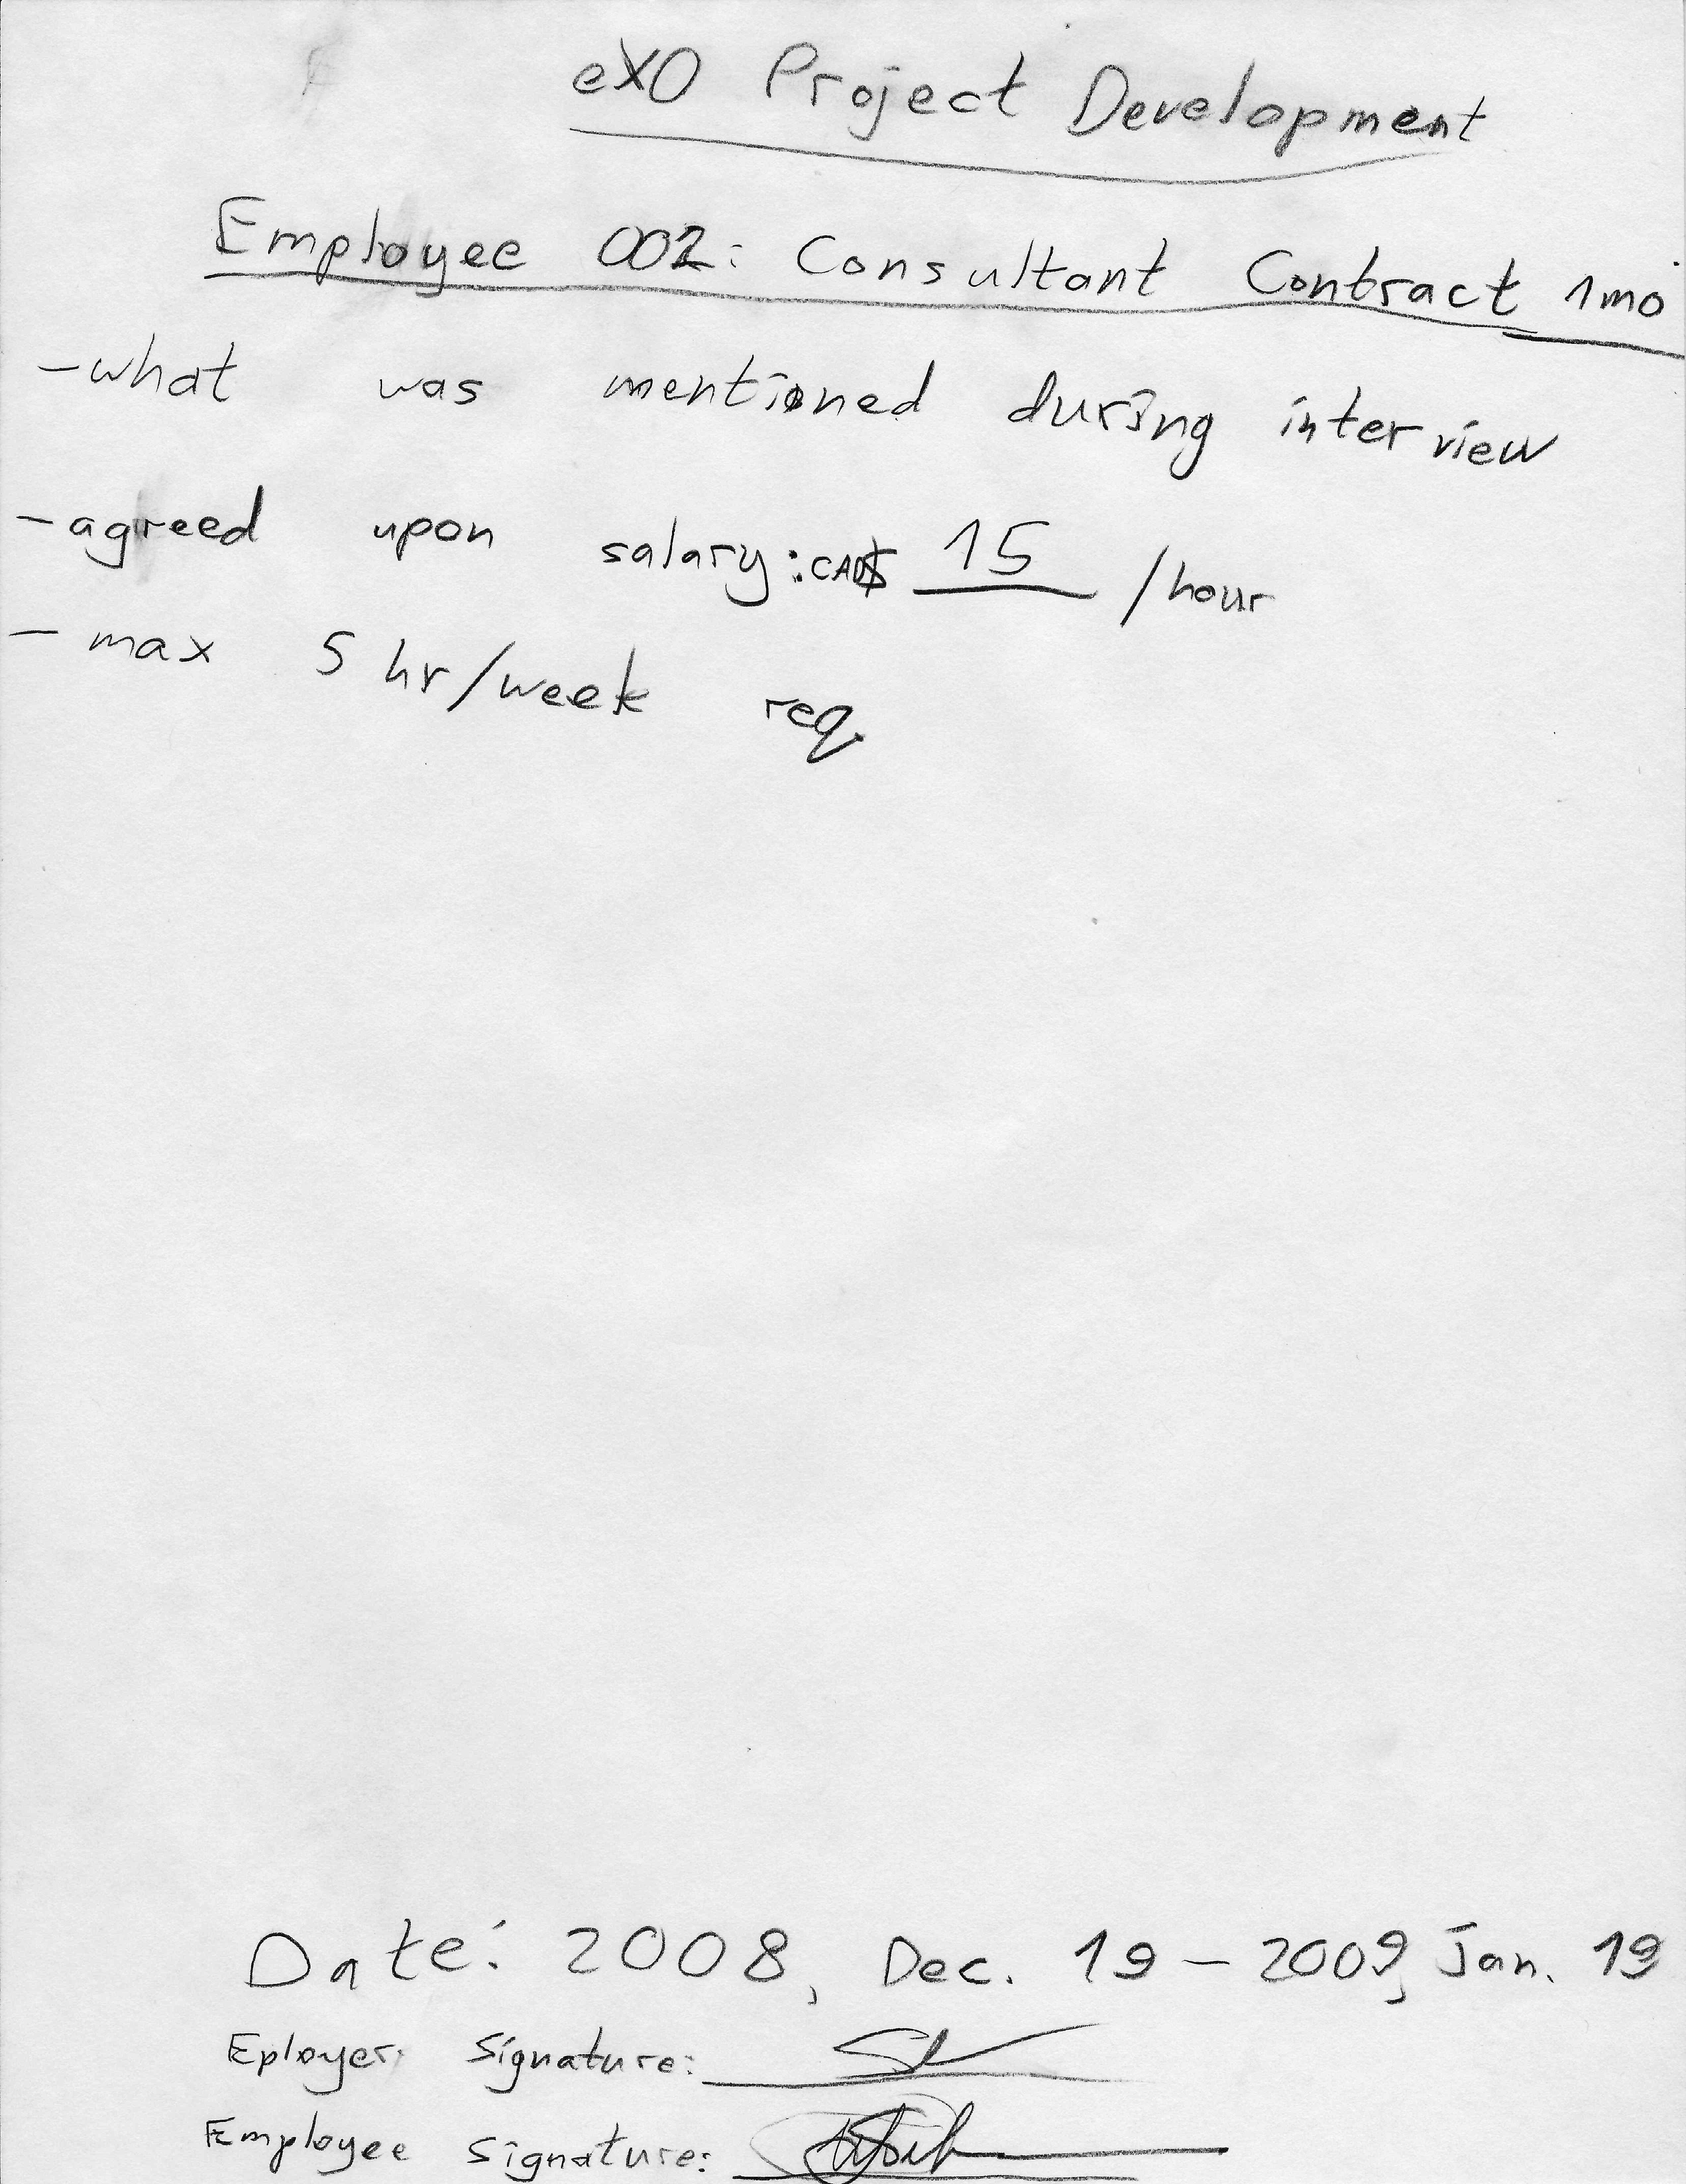 eXO Project Development
Employee 002: Consultant Contract 1mo
-what was mentioned during interview
-agreed upon salary: CAD$ 15 /hour
- max 5 hr/week req.
Date: 2008, Dec. 19 - 2009, Jan. 19
Eployer Signature:
Employee Signature: